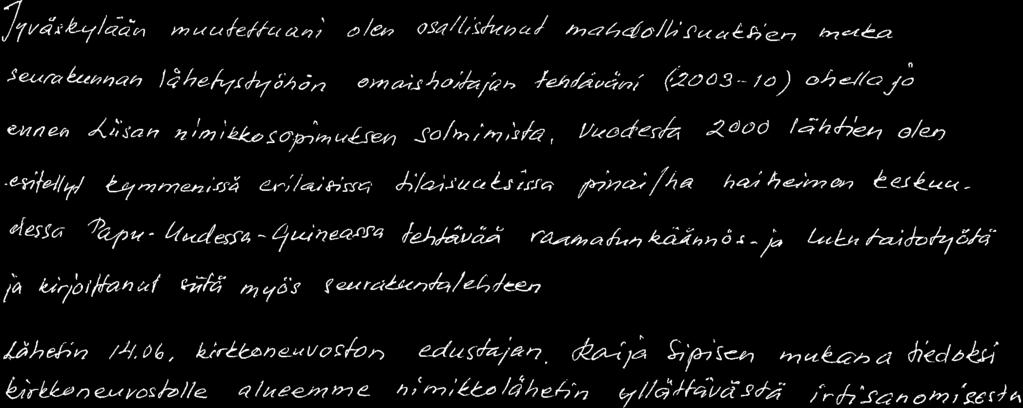 Jyväskylään muutettuani olen osallistunut mahdollisuuksien muka
seurakunnan lähetystyöhön omaishoitajan tehtäväni (2003-10) ohella jo
ennen Liisan nimikkosopimuksen solmimista. Vuodesta 2000 lähtien olen
esitellyt kymmenissä erilaisissa tilaisuuksissa pinai/ha hai heimon keskuu-
dessa Papu-Uudessa-Guineassa tehtävää raamatunkäännös- ja lukutaitotyötä
ja kirjoittanut siitä myös seurakuntalehteen
Lähetin 14.06. kirkkoneuvoston edustajan. Raija Sipisen mukana tiedoksi
kirkkoneuvostolle alueemme nimikkolähetin yllättävästä irtisanomisesta